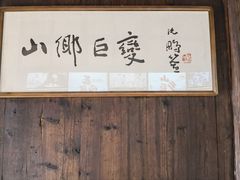 山鄉巨變
沈鵬簽